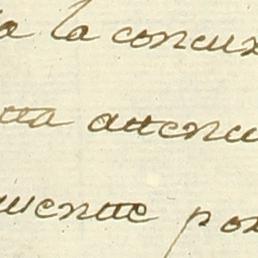 la concur
tta attenu
mente por